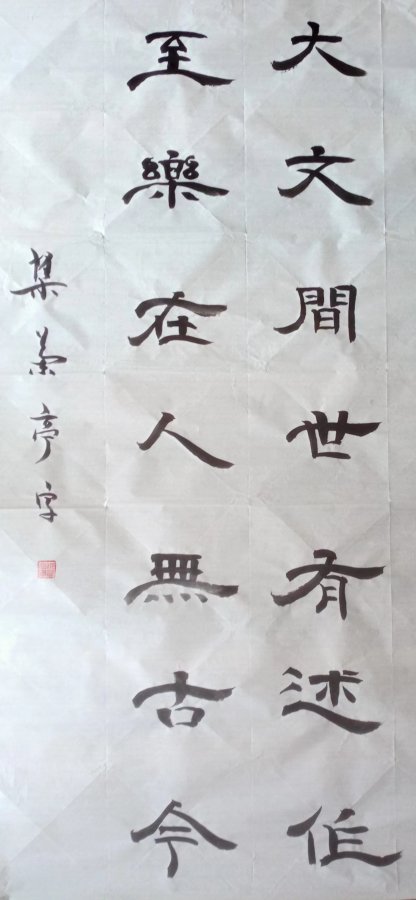 大文間世有述作
至樂在人無古今
集蘭亭字